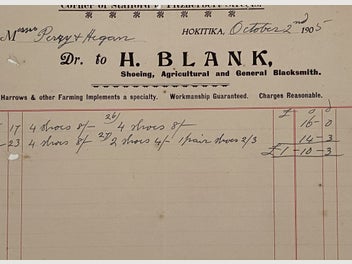 Corner of Stafford & Fitzherbert Streets.
Messrs Perry & Hegan HOKITIKA, October 2nd 1905
Dr. to H. BLANK,
Shoeing, Agricultural and General Blacksmith.
Harrows & other Farming Implements a specialty. Workmanship Guaranteed. Charges Reasonable.
£
17 4 shoes 8/- 26/ 4 shoes 8/- 16-0
23 4 shoes 8/- 27/ 2 shoes 4/- 1 pair shoes 2/3 14-3
£1-10-3